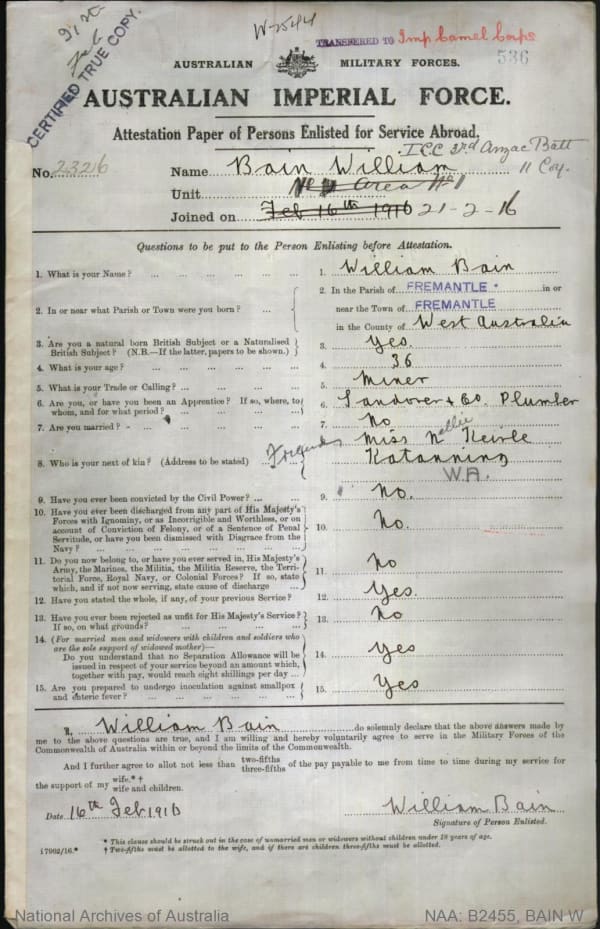 W-2544
TRANSFERED TO Imp Camel Corps
536
CERTIFIED TRUE COPY.
AUSTRALIAN MILITARY FORCES.
AUSTRALIAN IMPERIAL FORCE.
Attestation Paper of Persons Enlisted for Service Abroad.
I C C 3rd Anzac Batt
11 Coy.
No. 2326 Name Bain William
Unit Area No 1
Joined on Feb 16th 1916 21-2-16
Questions to be put to the Person Enlisting before Attestation.
1. What is your Name? ... 1. William Bain
2. In or near what Parish or Town were you born? ... 2. In the Parish of FREMANTLE in or
near the Town of FREMANTLE
in the County of West Australia
3. Are you a natural born British Subject or a Naturalised
British Subject? (N.B.—If the latter, papers to be shown.) 3. Yes.
4. What is your age? ... 4. 36
5. What is your Trade or Calling? ... 5. Miner
6. Are you, or have you been an Apprentice? If so, where, to
whom, and for what period? ... 6. Sandover & Co. Plumber
7. Are you married? ... 7. No
8. Who is your next of kin? (Address to be stated) ... Friend 8. Miss Nellie Keirle
Katanning
W.A.
9. Have you ever been convicted by the Civil Power? ... 9. No.
10. Have you ever been discharged from any part of His Majesty's
Forces with Ignominy, or as Incorrigible and Worthless, or on
account of Conviction of Felony, or of a Sentence of Penal
Servitude, or have you been Dismissed with Disgrace from the
Navy? ... 10. No.
11. Do you now belong to, or have you ever served in, His Majesty's
Army, the Marines, the Militia, the Militia Reserve, the Terri-
torial Force, Royal Navy, or Colonial Forces? If so, state
which, and if not now serving, state cause of discharge ... 11. No
12. Have you stated the whole, if any, of your previous Service? 12. Yes.
13. Have you ever been rejected as unfit for His Majesty's Service?
If so, on what grounds? ... 13. No
14. (For married men and widowers with children and soldiers who
are the sole support of widowed mother)—
Do you understand that no Separation Allowance will be
issued in respect of your service beyond an amount which,
together with pay, would reach eight shillings per day ... 14. Yes
15. Are you prepared to undergo inoculation against smallpox
and enteric fever? ... 15. Yes
I, William Bain do solemnly declare that the above answers made by
me to the above questions are true, and I am willing and hereby voluntarily agree to serve in the Military Forces of the
Commonwealth of Australia within or beyond the limits of the Commonwealth.
And I further agree to allot not less than two-fifths three-fifths of the pay payable to me from time to time during my service for
the support of my wife.* † wife and children.
Date 16th Feb 1916 William Bain
Signature of Person Enlisted.
* This clause should be struck out in the case of unmarried men or widowers without children under 18 years of age.
17902/16.* † Two-fifths must be allotted to the wife, and if there are children three-fifths must be allotted.
National Archives of Australia NAA: B2455, BAIN W